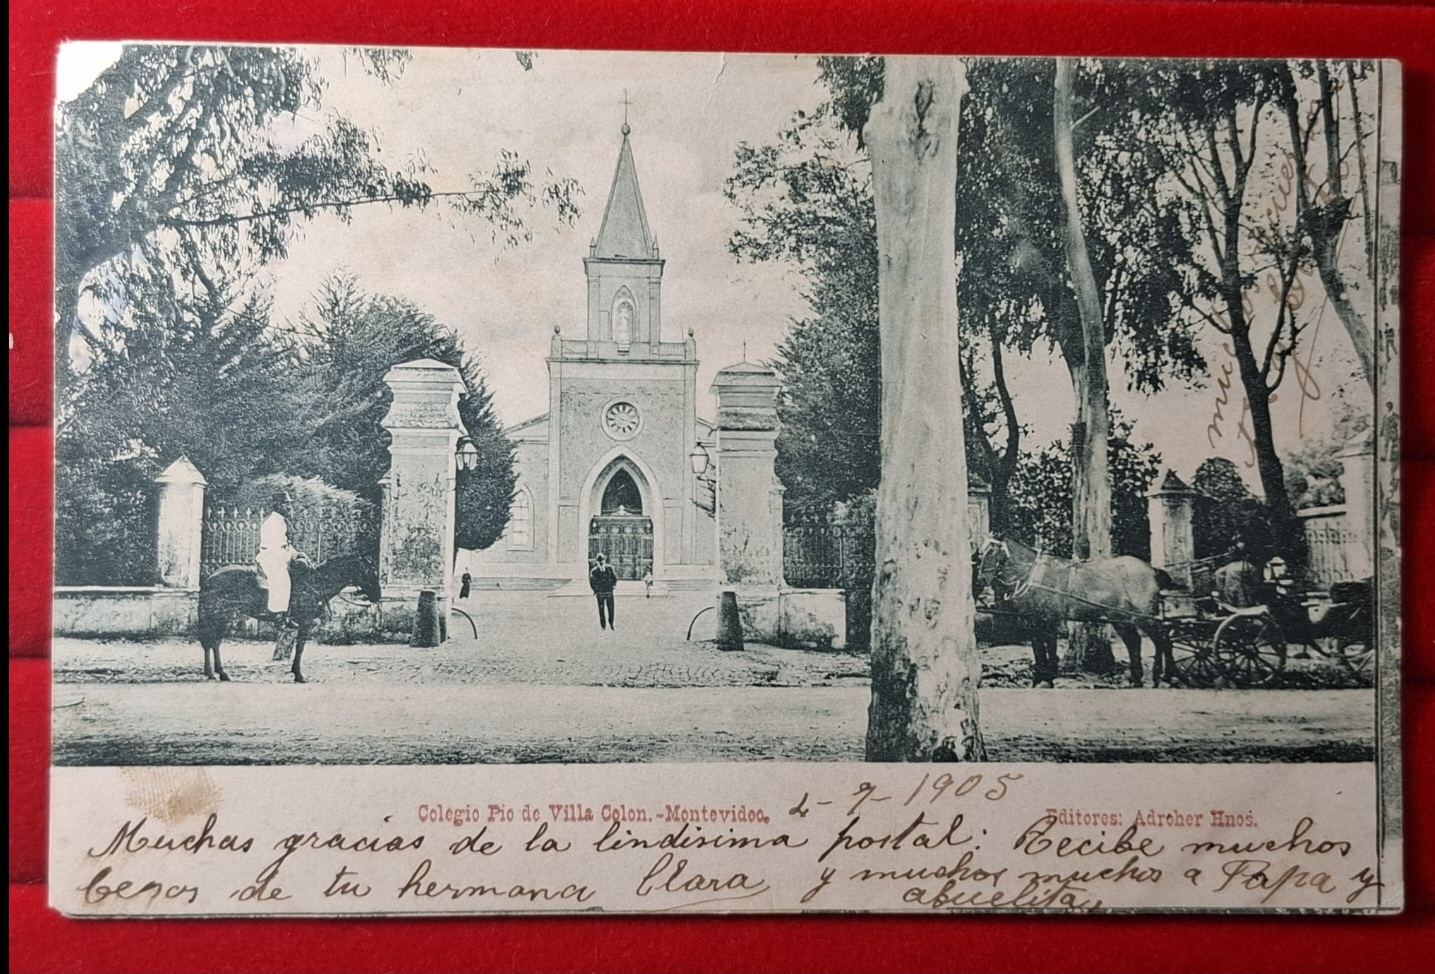 Colegio Pio de Villa Colon.-Montevideo.
4-9-1905
Editores: Adroher Hnos.
Muchas gracias de la lindisima postal: Recibe muchos
besos de tu hermana Clara y muchos muchos a Papa y
abuelita